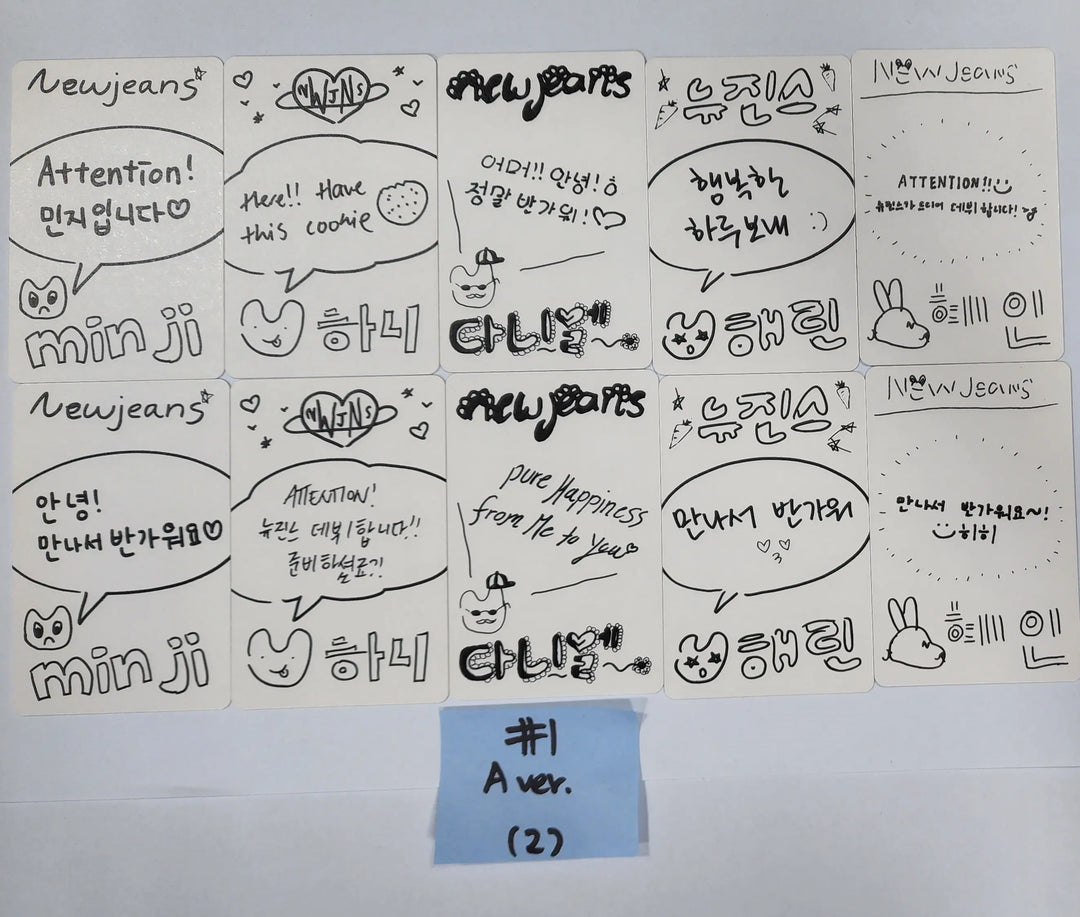 Newjeans
Attention!
민지입니다♡
min ji
NWJNS
Here!! Have
this cookie
하니
Newjeans
어머!! 안녕!
정말 반가워!♡
다니엘
뉴진스
행복한
하루보내 :)
해린
NEW JEANS
ATTENTION!!
뉴진스가 드디어 데뷔합니다!
혜인
Newjeans
안녕!
만나서 반가워요♡
min ji
NWJNS
ATTENTION!
뉴진스 데뷔합니다!!
준비하셨죠?!
하니
Newjeans
pure Happiness
from Me to You♡
다니엘
뉴진스
만나서 반가워
해린
NEW JEANS
만나서 반가워요~!
히히
혜인
#1
A ver.
(2)